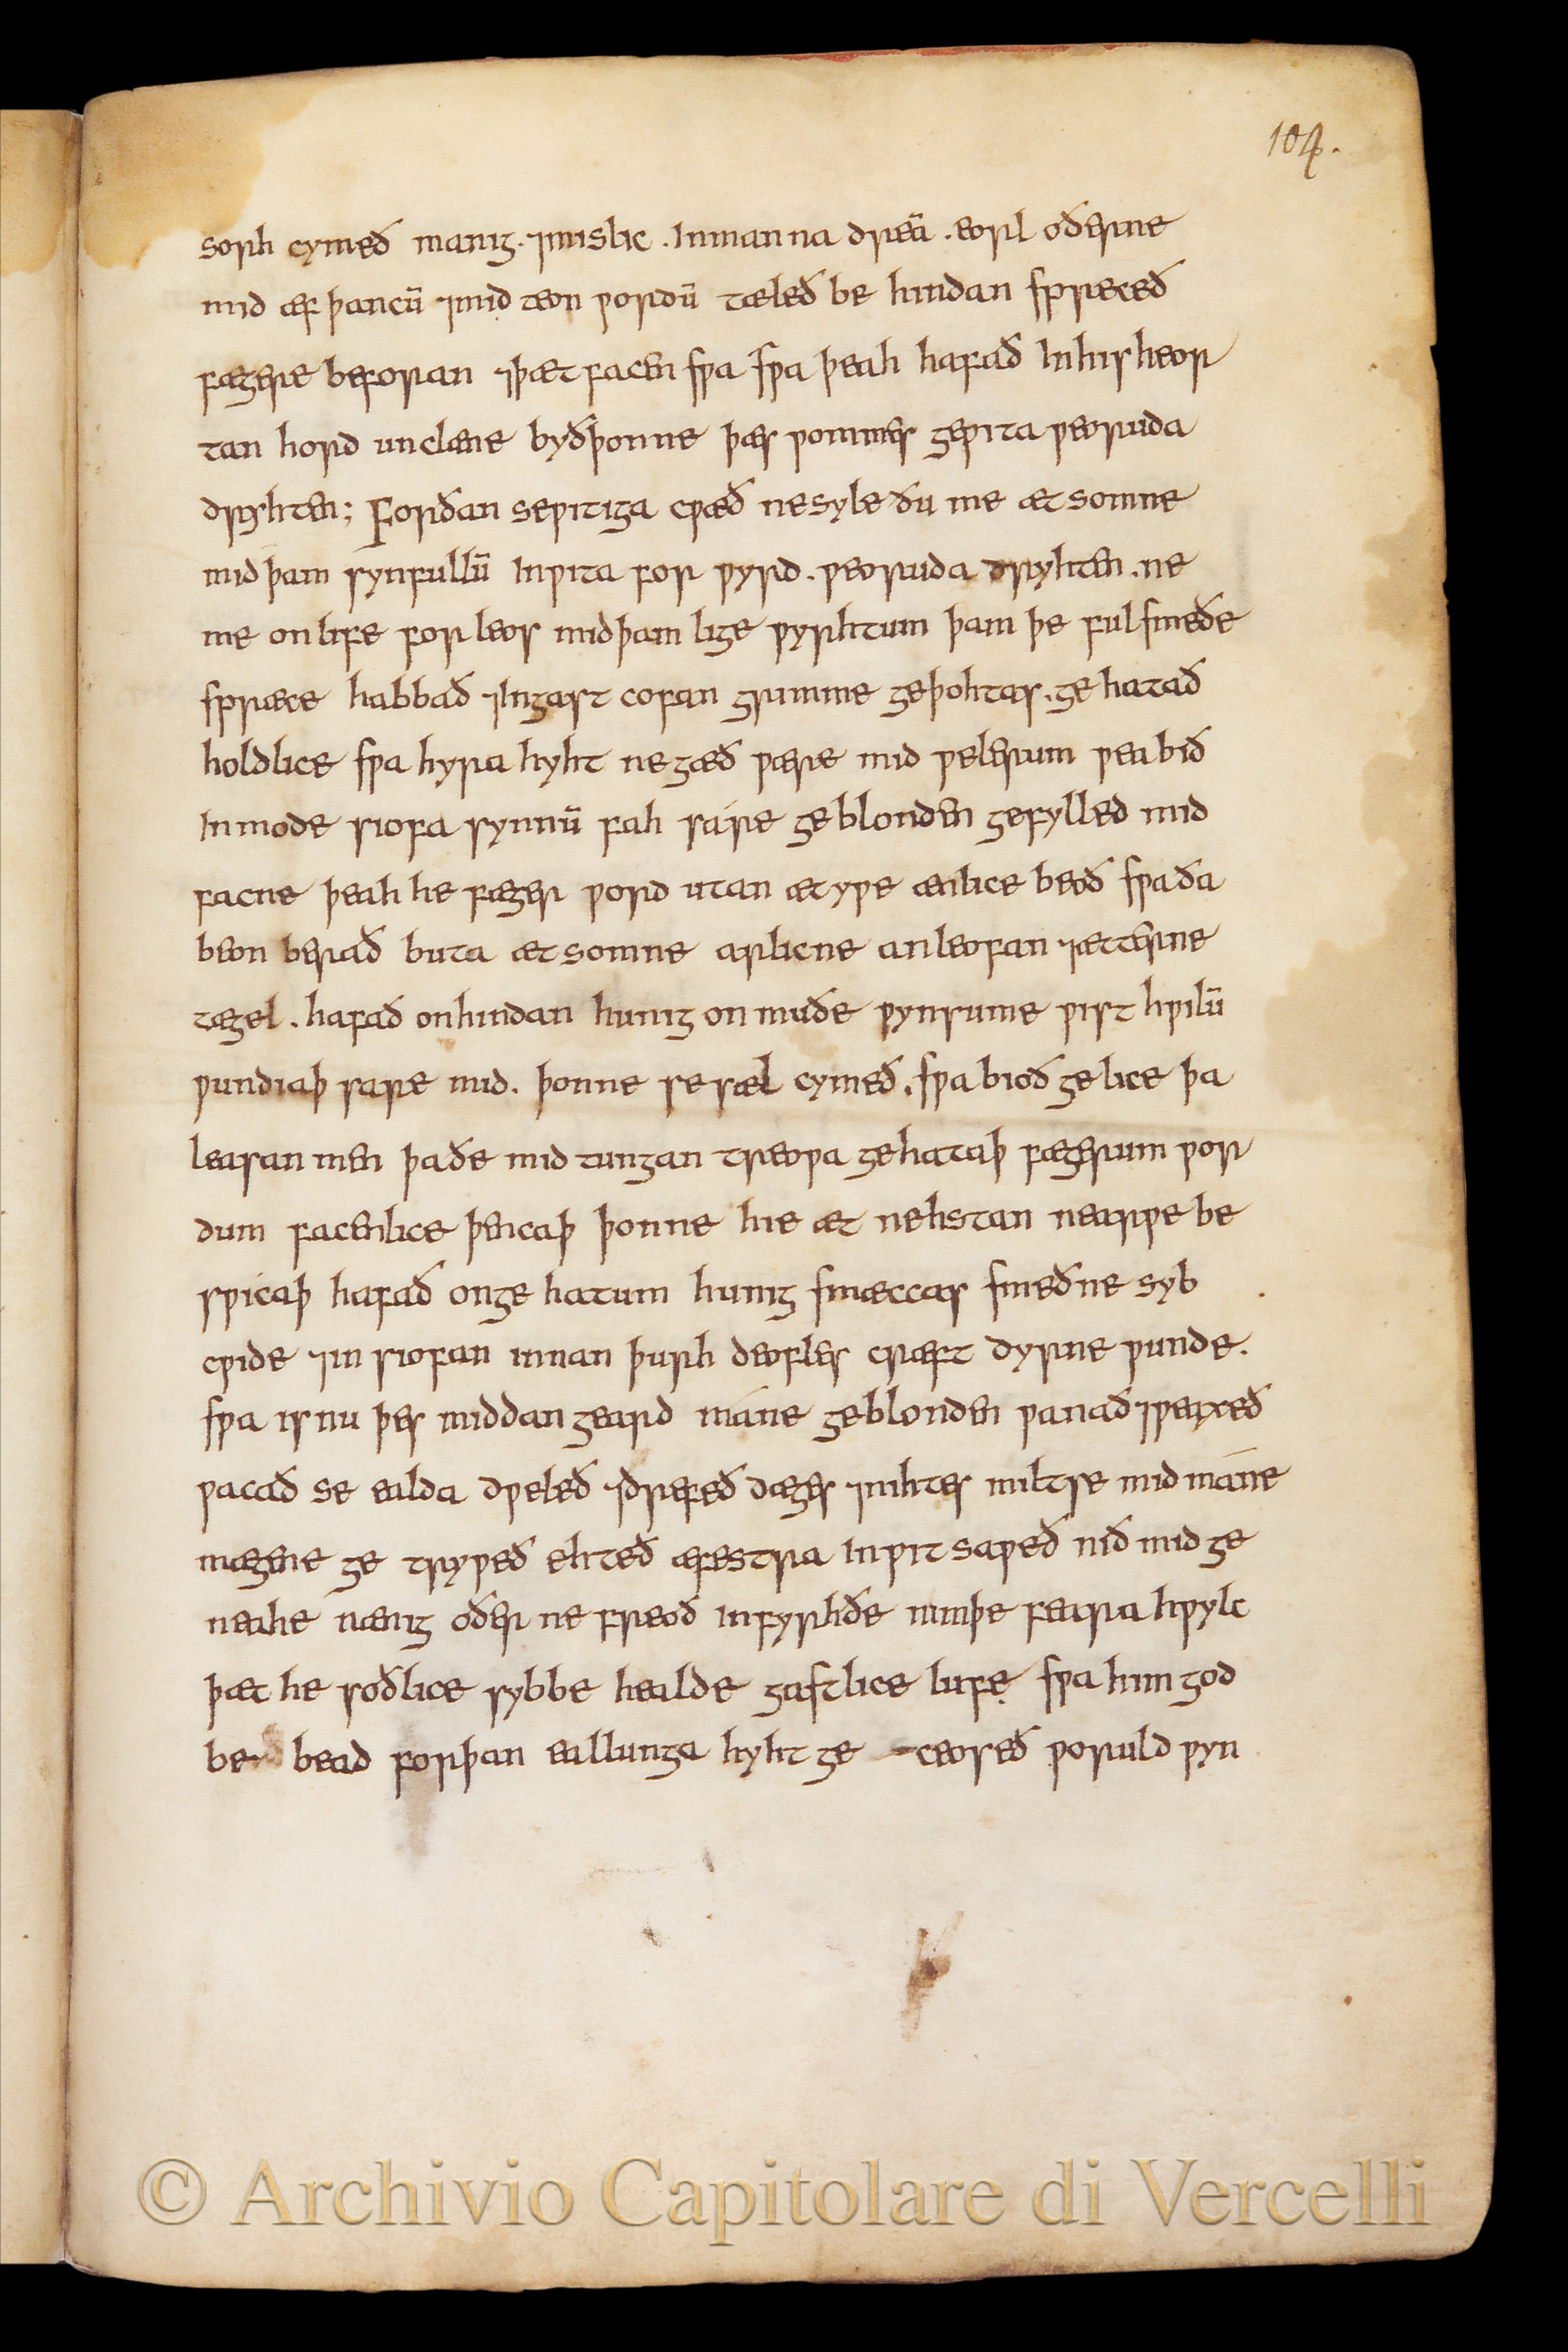 104.
sorh cymeð maniᵹ·⁊mislic . Inmanna dreā . eorl oðerne
mid æf þancū ⁊mid teon ƿordū tæleð be hindan spreceð
fæᵹere beforan ⁊þæt facen sƿa sƿa þeah hafað Inhis heor
tan hord unclæne byðþonne þæs ƿommes ᵹeƿita ƿeoruda
dryhten; Forðan seƿitiᵹa cƿæð nesyle ðu me æt somne
mid þam synfullū Inƿita for ƿyrd . ƿeoruda dryhten . ne
me on life forleos midþam liᵹe ƿyrhtum þam þe ful smeðe
spræce habbað ⁊Inᵹast cofan ᵹrimme ᵹeþohtas . ᵹe hatað
holdlice sƿa hyra hyht neᵹæð ƿære mid ƿelerum ƿea bið
Inmode siofa synnū fah sáre ᵹeblonden ᵹefylled mid
facne þeah he fæᵹer ƿord utan ætyƿe ænlice beoð sƿa ða
beon berað buta æt somne arlicne anleofan ⁊ætterne
tæᵹel . hafað onhindan huniᵹ on muðe ƿynsume ƿist hƿilū
ƿundiaþ sare mid . þonne se sæl cymeð . sƿa bioð ᵹelice þa
leasan men þa ðe mid tunᵹan treoƿa ᵹehataþ fæᵹerum ƿor
dum facenlice þencaþ þonne hie æt nehstan nearƿe be
sƿicaþ hafað onᵹe hatum huniᵹ smæccas smeðne syb
cƿide ⁊in siofan innan þurh deofles cræft dyrne ƿunde .
sƿa is nu þes middan ᵹeard máne ᵹeblonden ƿanað⁊ƿeaxeð
ƿacað se ealda dƿeleð ⁊drefeð dæᵹes ⁊nihtes miltse mid máne
mæᵹene ᵹe tryƿeð ehteð æfestra Inƿit saƿeð nið mid ᵹe
neahe næniᵹ oðer ne freoð in fyrhðe nimþe feara hƿylc
þæt he soðlice sybbe healde ᵹastlice lufe sƿa him ᵹod
be bead forþan eallunᵹa hyht ᵹe ceoseð ƿoruld ƿyn
© Archivio Capitolare di Vercelli